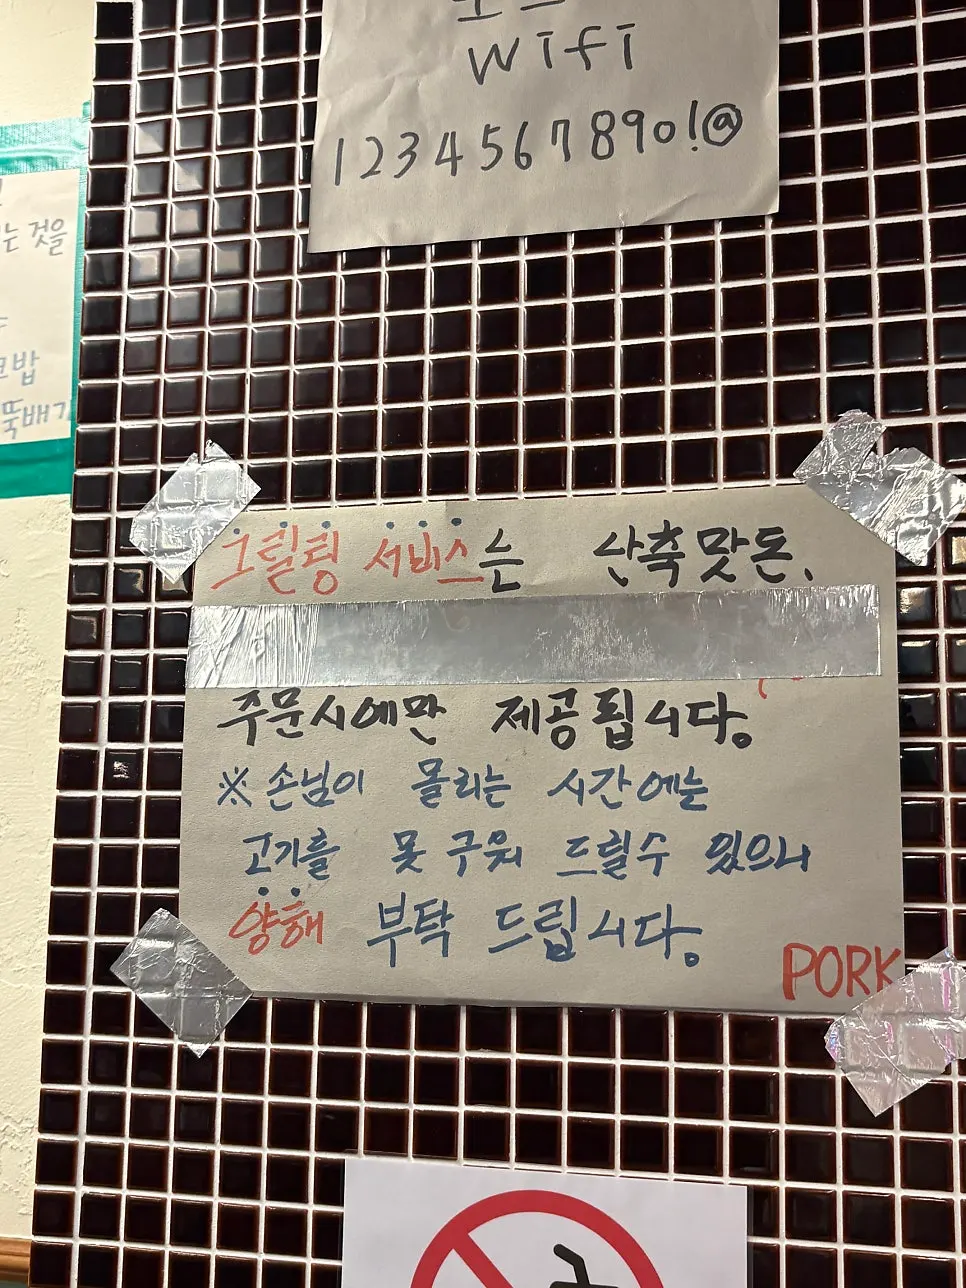 wifi
1234567890!@
는 것을
밥
뚝배기
그릴링 서비스는 산축맛돈,
주문시에만 제공됩니다.
※ 손님이 몰리는 시간에는
고기를 못 구워 드릴수 있으니
양해 부탁 드립니다.
PORK